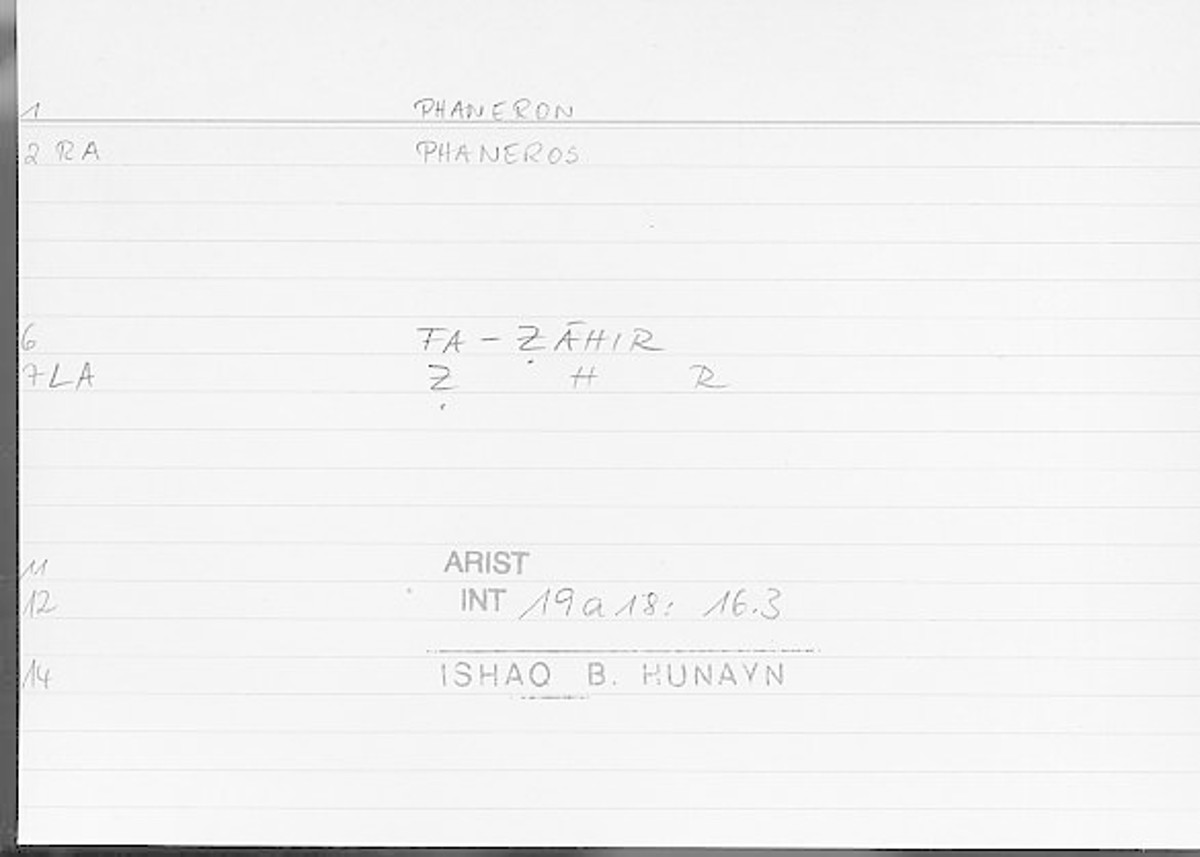 1 PHANERON
2 RA PHANEROS
6 FA - ẒĀHIR
7 LA Ẓ H R
11 ARIST
12 INT 19a18: 16.3
14 ISHAQ B. HUNAYN